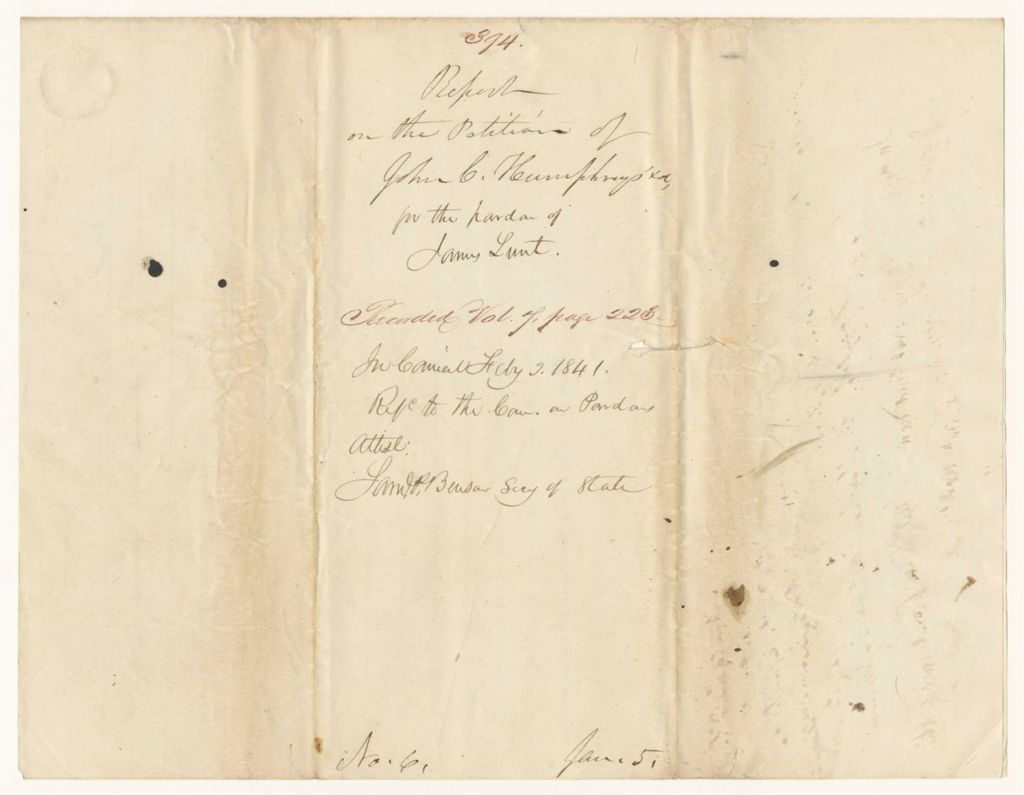 374.
Report
on the Petition of
John C. Humphreys & a,
for the pardon of
James Lunt.
Recorded, Vol. 7, page 223.
In Council Feby 2. 1841.
Refd to the Com. on Pardons
Attest:
Saml P. Benson Secy of State
No. 6. Jan. 5.